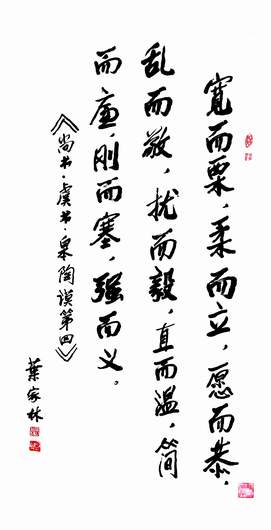 寬而栗，柔而立，愿而恭，
乱而敬，扰而毅，直而温，简
而廉，刚而塞，强而义。
《尚书·虞书·皋陶谟第四》
葉家林